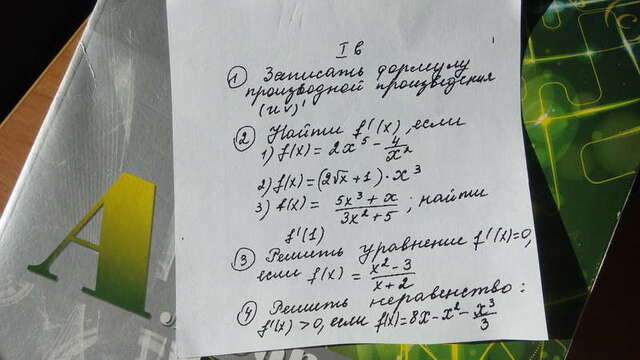 I в
① Записать формулу
производной произведения
(uv)'
② Найти f'(x), если
1) f(x) = 2x⁵ - 4/x²
2) f(x) = (2√x + 1) · x³
3) f(x) = (5x³ + x)/(3x² + 5) ; найти
f'(1)
③ Решить уравнение f'(x)=0,
если f(x) = (x² - 3)/(x + 2)
④ Решить неравенство:
f'(x) > 0, если f(x) = 8x - x² - x³/3
А